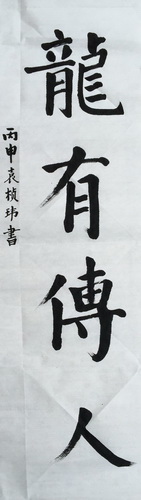 龍有傳人
丙申袁楨瑋書